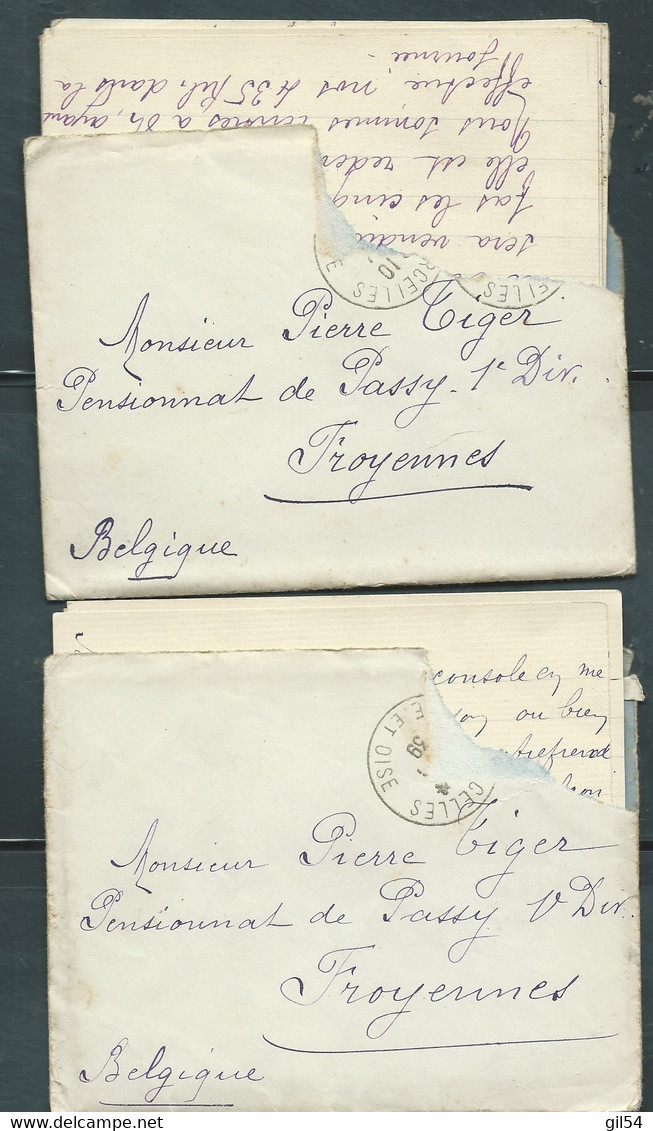 sera vendr
pas les cinq
elle est reder
Nous sommes rentrés à 8h, ayant
effectué nos 435 kil. dans la
journée.
RCELLES
10
E
ELLES
Monsieur Pierre Tiger
Pensionnat de Passy. 1e Div.
Froyennes
Belgique
console en me-
son ou bien
CELLES
ET OISE
39
Monsieur Pierre Tiger
Pensionnat de Passy 1e Div.
Froyennes
Belgique
delcampe.net
gil54